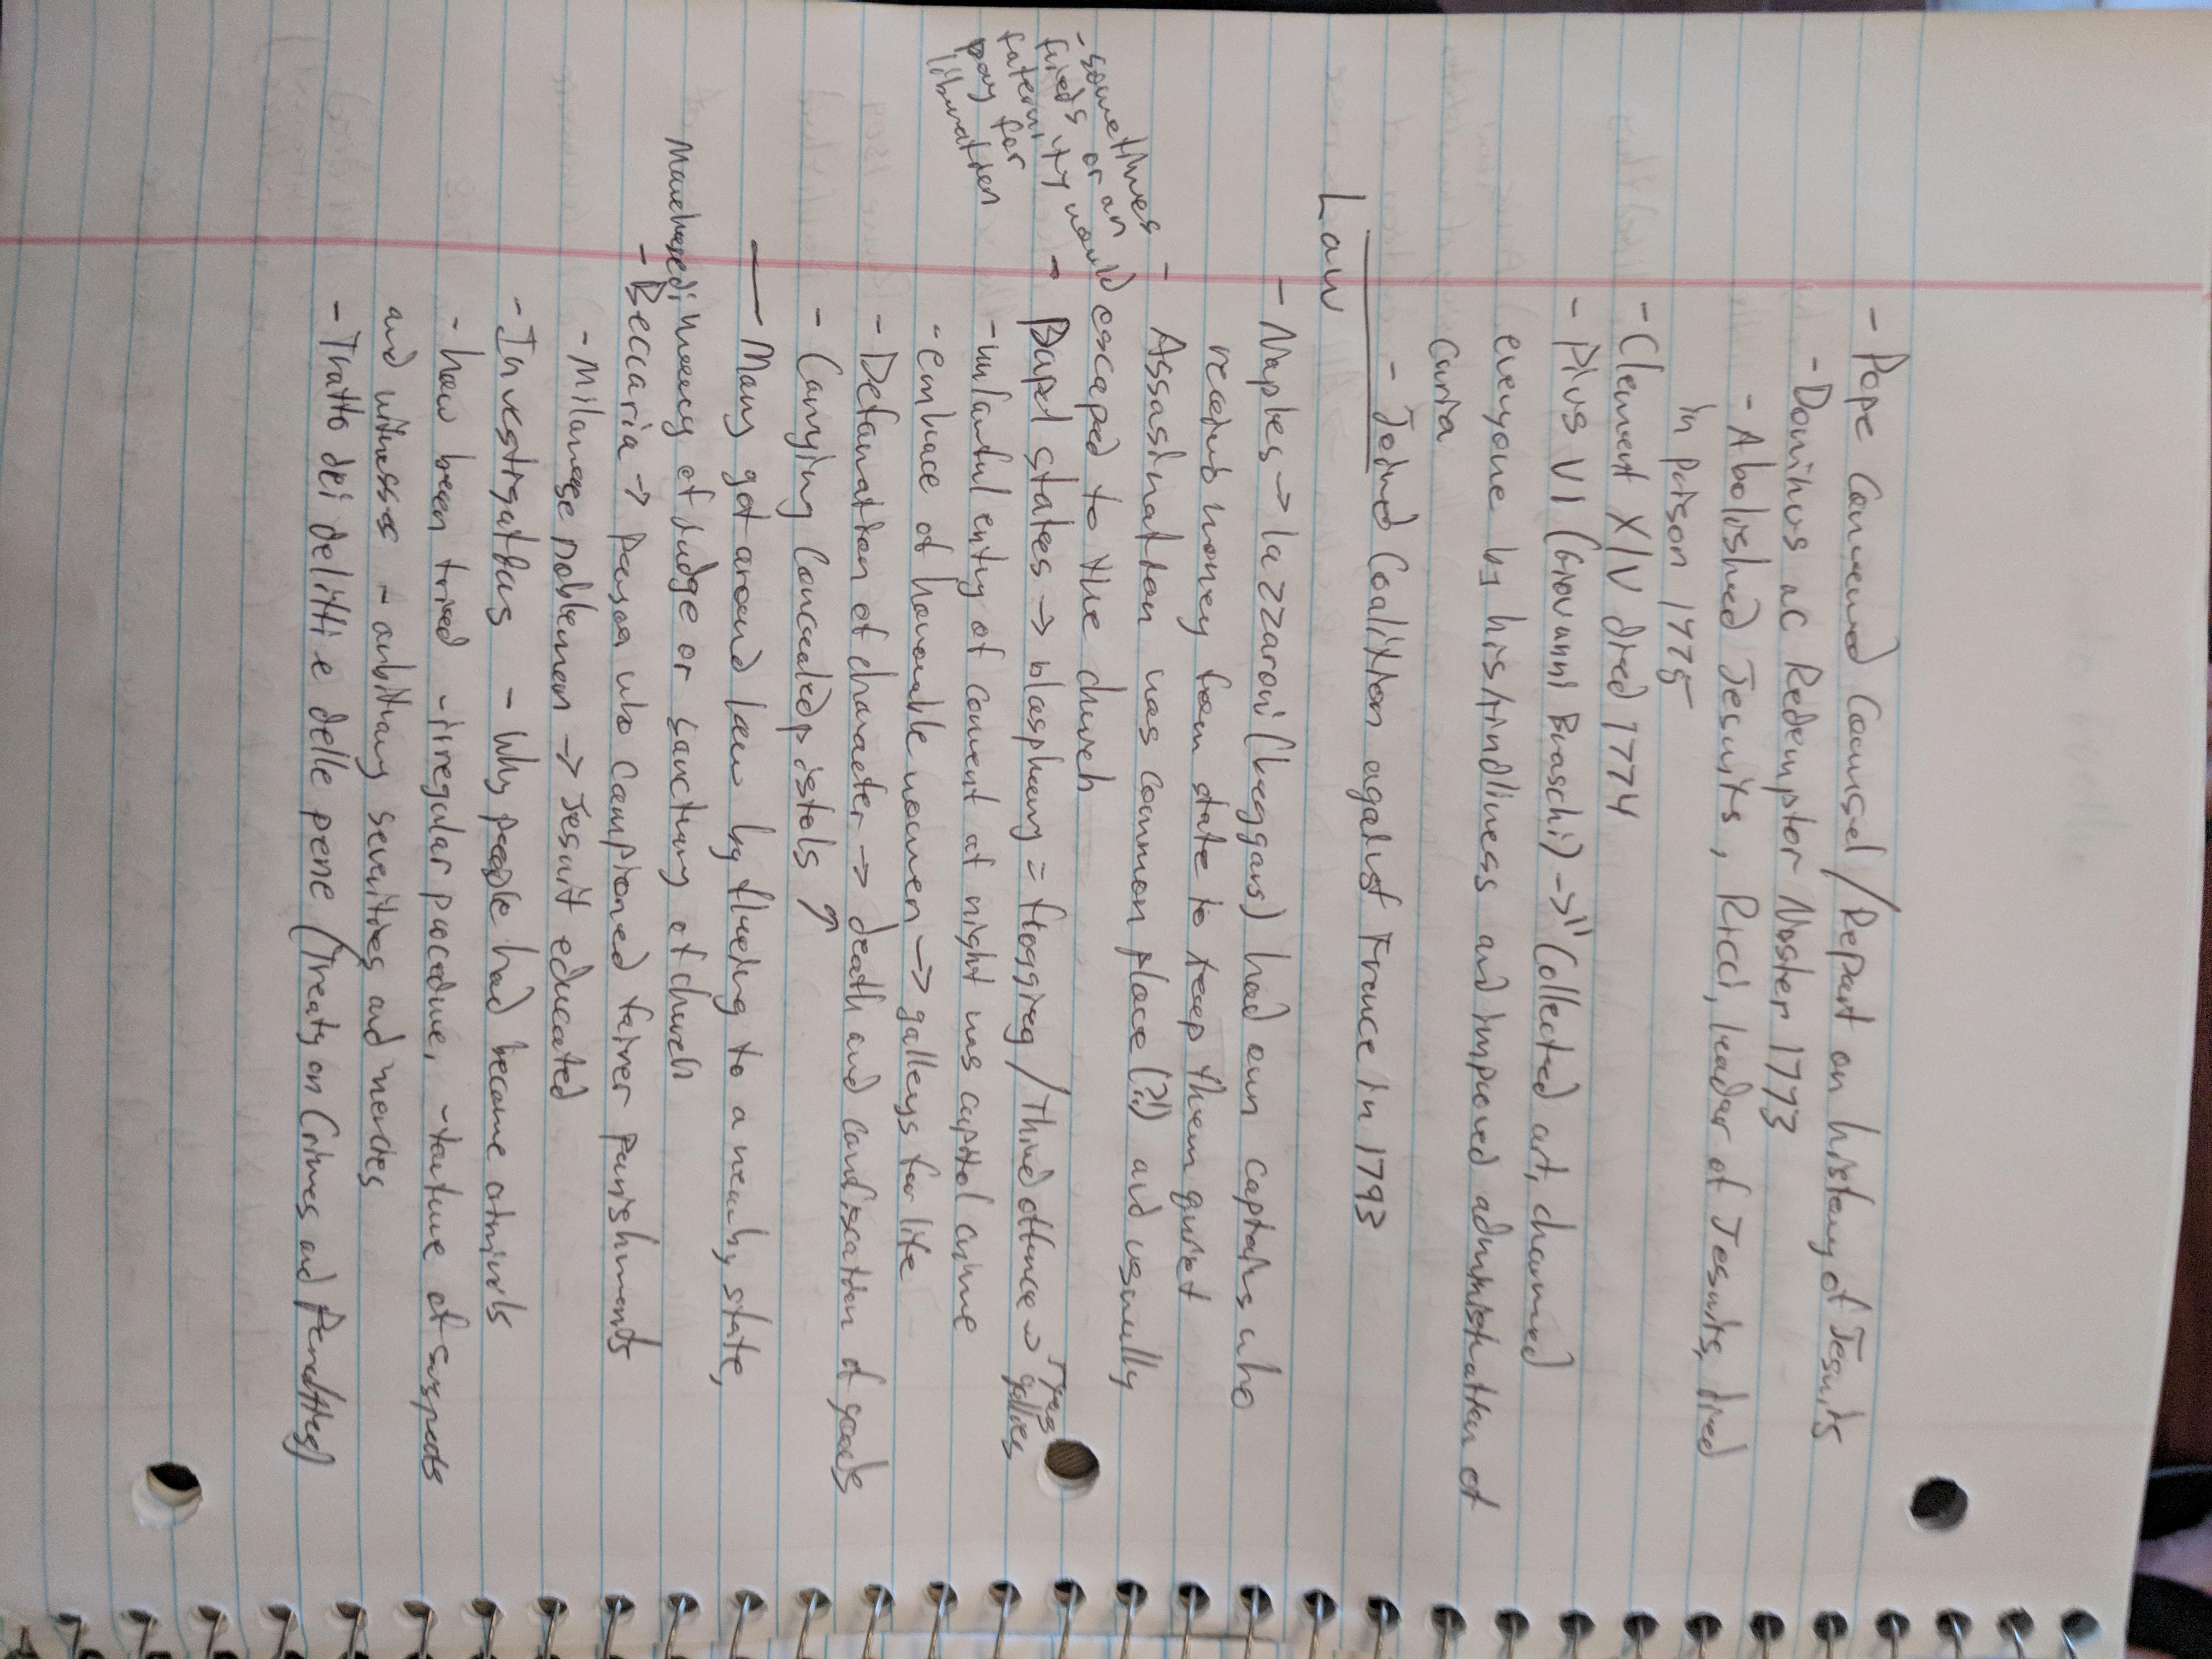 - Pope Convened Counsel/Report on history of Jesuits
- Dominus ac Redemptor Noster 1773
- Abolished Jesuits, Ricci, leader of Jesuits, died
in prison 1775
- Clement XIV died 1774
- Pius VI (Giovanni Braschi) -> Collected art, charmed
everyone by his kindliness and improved administration of
Curia
- Joined Coalition against France in 1793
Law
- Naples -> lazzaroni (beggars) had own captains who
receive money from state to keep them quiet
- Assasination was common place (?!) and usually
escaped to the church
- sometimes
frieds or an
faternity would
pay for
liberation
- Papel states -> blasphemy = flogging / third offence -> 5 yrs
gallies
- unlawful entry of convent at night was capitol crime
- embrace of honorable women -> galleys for life
- Defamation of character -> death and confiscation of goods
- Carrying Concealed pistols ↗
- Many got around law by fleeing to a nearby state,
mercy of judge or sanctuary of church
- Beccaria -> Person who campioned fairer punishments
- Milanese noblemen -> Jesuit educated
- Investigations - Why people had become criminals
- how been tried - irregular procedure, - torture of suspects
and witnesses - arbitrary severities and mercies
- Tratto dei delitti e delle pene (Treaty on Crimes and Penalties)